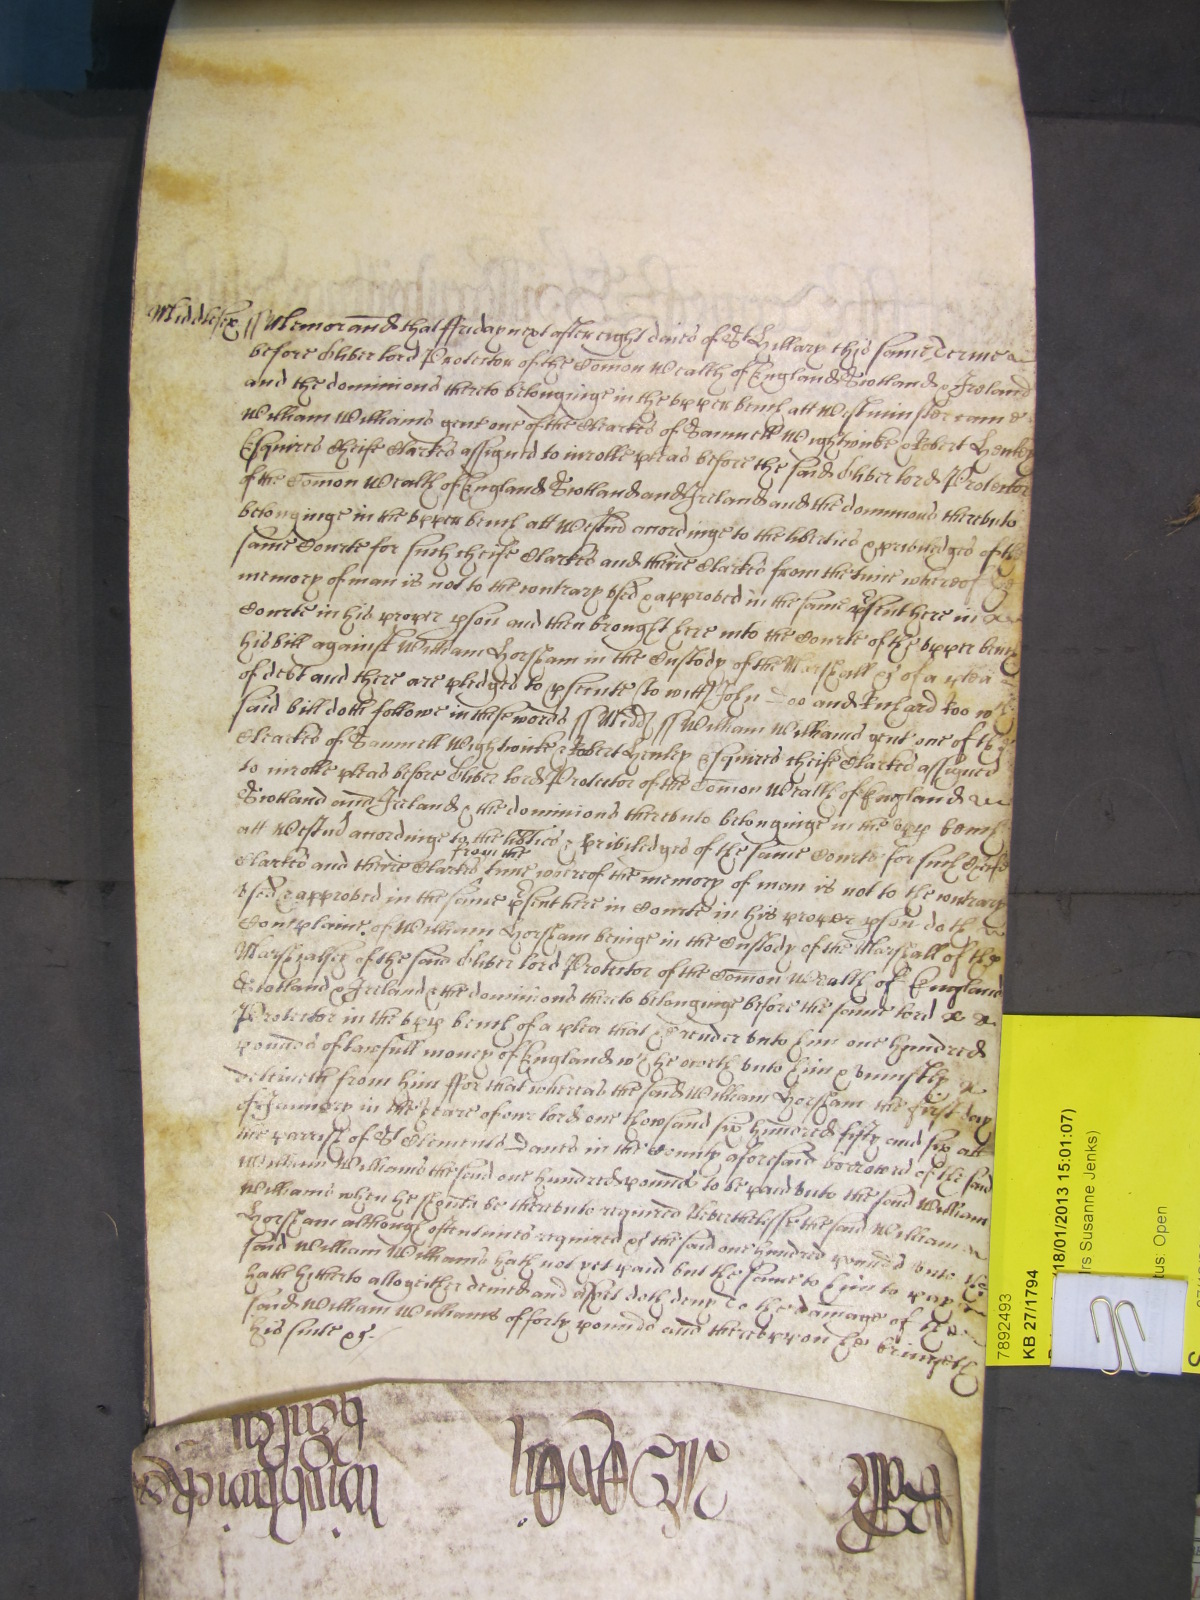 Middlesex ss Memorand that ffriday next after eight daies of St Hillary this same Terme
before Oliver lord Protector of the Comon Wealth of England Scotland & Ireland
and the dominions thereto belonginge in the upper bench att Westminster came
William Williams gent one of the Clearkes of Samuell Wightwicke & Robert Henley
Esquires Cheife Clarkes assigned to inrolle pleas before the said Oliver lord Protector
of the Comon Wealth of England Scotland and Ireland and the dominions thereunto
belonginge in the upper bench att Westmr accordinge to the liberties & priviledges of the
same Courte for such cheife Clarkes and theire Clarkes from the time whereof
memory of man is not to the contrary used & approved in the same psent here in
Courte in his proper pson and then brought here into the Courte of the upper bench
his bill against William Horsham in the Custody of the Marshall &c of a plea
of debt and there are pledges to psecute to witt John Doo and Richard Roo wch
said bill doth followe in these words ss Midd ss William Williams gent one of the
Clearkes of Samuell Wightwicke & Robert Henley Esquires cheife Clarkes assigned
to inrolle pleas before Oliver lord Protector of the Comon Wealth of England
Scotland and Ireland & the dominions thereunto belonginge in the upp bench
att Westmr accordinge to the libties & priviledges of the same Courte for such Cheife
Clarkes and theire Clarkes from the time whereof the memory of man is not to the contrary
used & approved in the same psent here in Courte in his proper pson doth
Complaine of William Horsham beinge in the Custody of the Marshall of the
Marshalsey of the said Oliver lord Protector of the Comon Wealth of England
Scotland & Ireland & the dominions thereto belonginge before the same lord
Protector in the upp bench of a plea that he render unto him one hundred
pounds of lawfull money of England wch he oweth unto him & uniustly
deteineth from him ffor that whereas the said William Horsham the first day
of January in the yeare of our lord one thowsand six hundred fifty and six att
the parrish of St Clements Danes in the County aforesaid borrowed of the said
William Williams the said one hundred pounds to be paid unto the said William
Williams when he should be thereunto required Neverthelesse the said William
Horsham although oftentimes required &c the said one hundred pounds unto the
said William Williams hath not yet paid but the same to him to pay
hath hitherto altogeither denied and as yet doth deny To the damage of the
said William Williams of forty pounds and thereuppon he bringeth
his suite &c
Wightwicke
henley
7892493
KB 27/1794
18/01/2013 15:01:07)
rs Susanne Jenks)
tus: Open